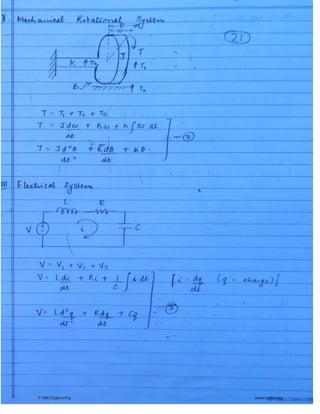 II. Mechanical Rotational System
(21)
J T
K T₃ T₁
B T₂
T = T₁ + T₂ + T₃
T = Jdω/dt + Bω + K∫ω dt
T = Jd²θ/dt² + Bdθ/dt + Kθ — ②
III Electrical System
L R
V i C
V = V₁ + V₂ + V₃
V = Ldi/dt + Ri + 1/C ∫i dt [i = dq/dt (q = charge)]
V = Ld²q/dt² + Rdq/dt + Cq — ③